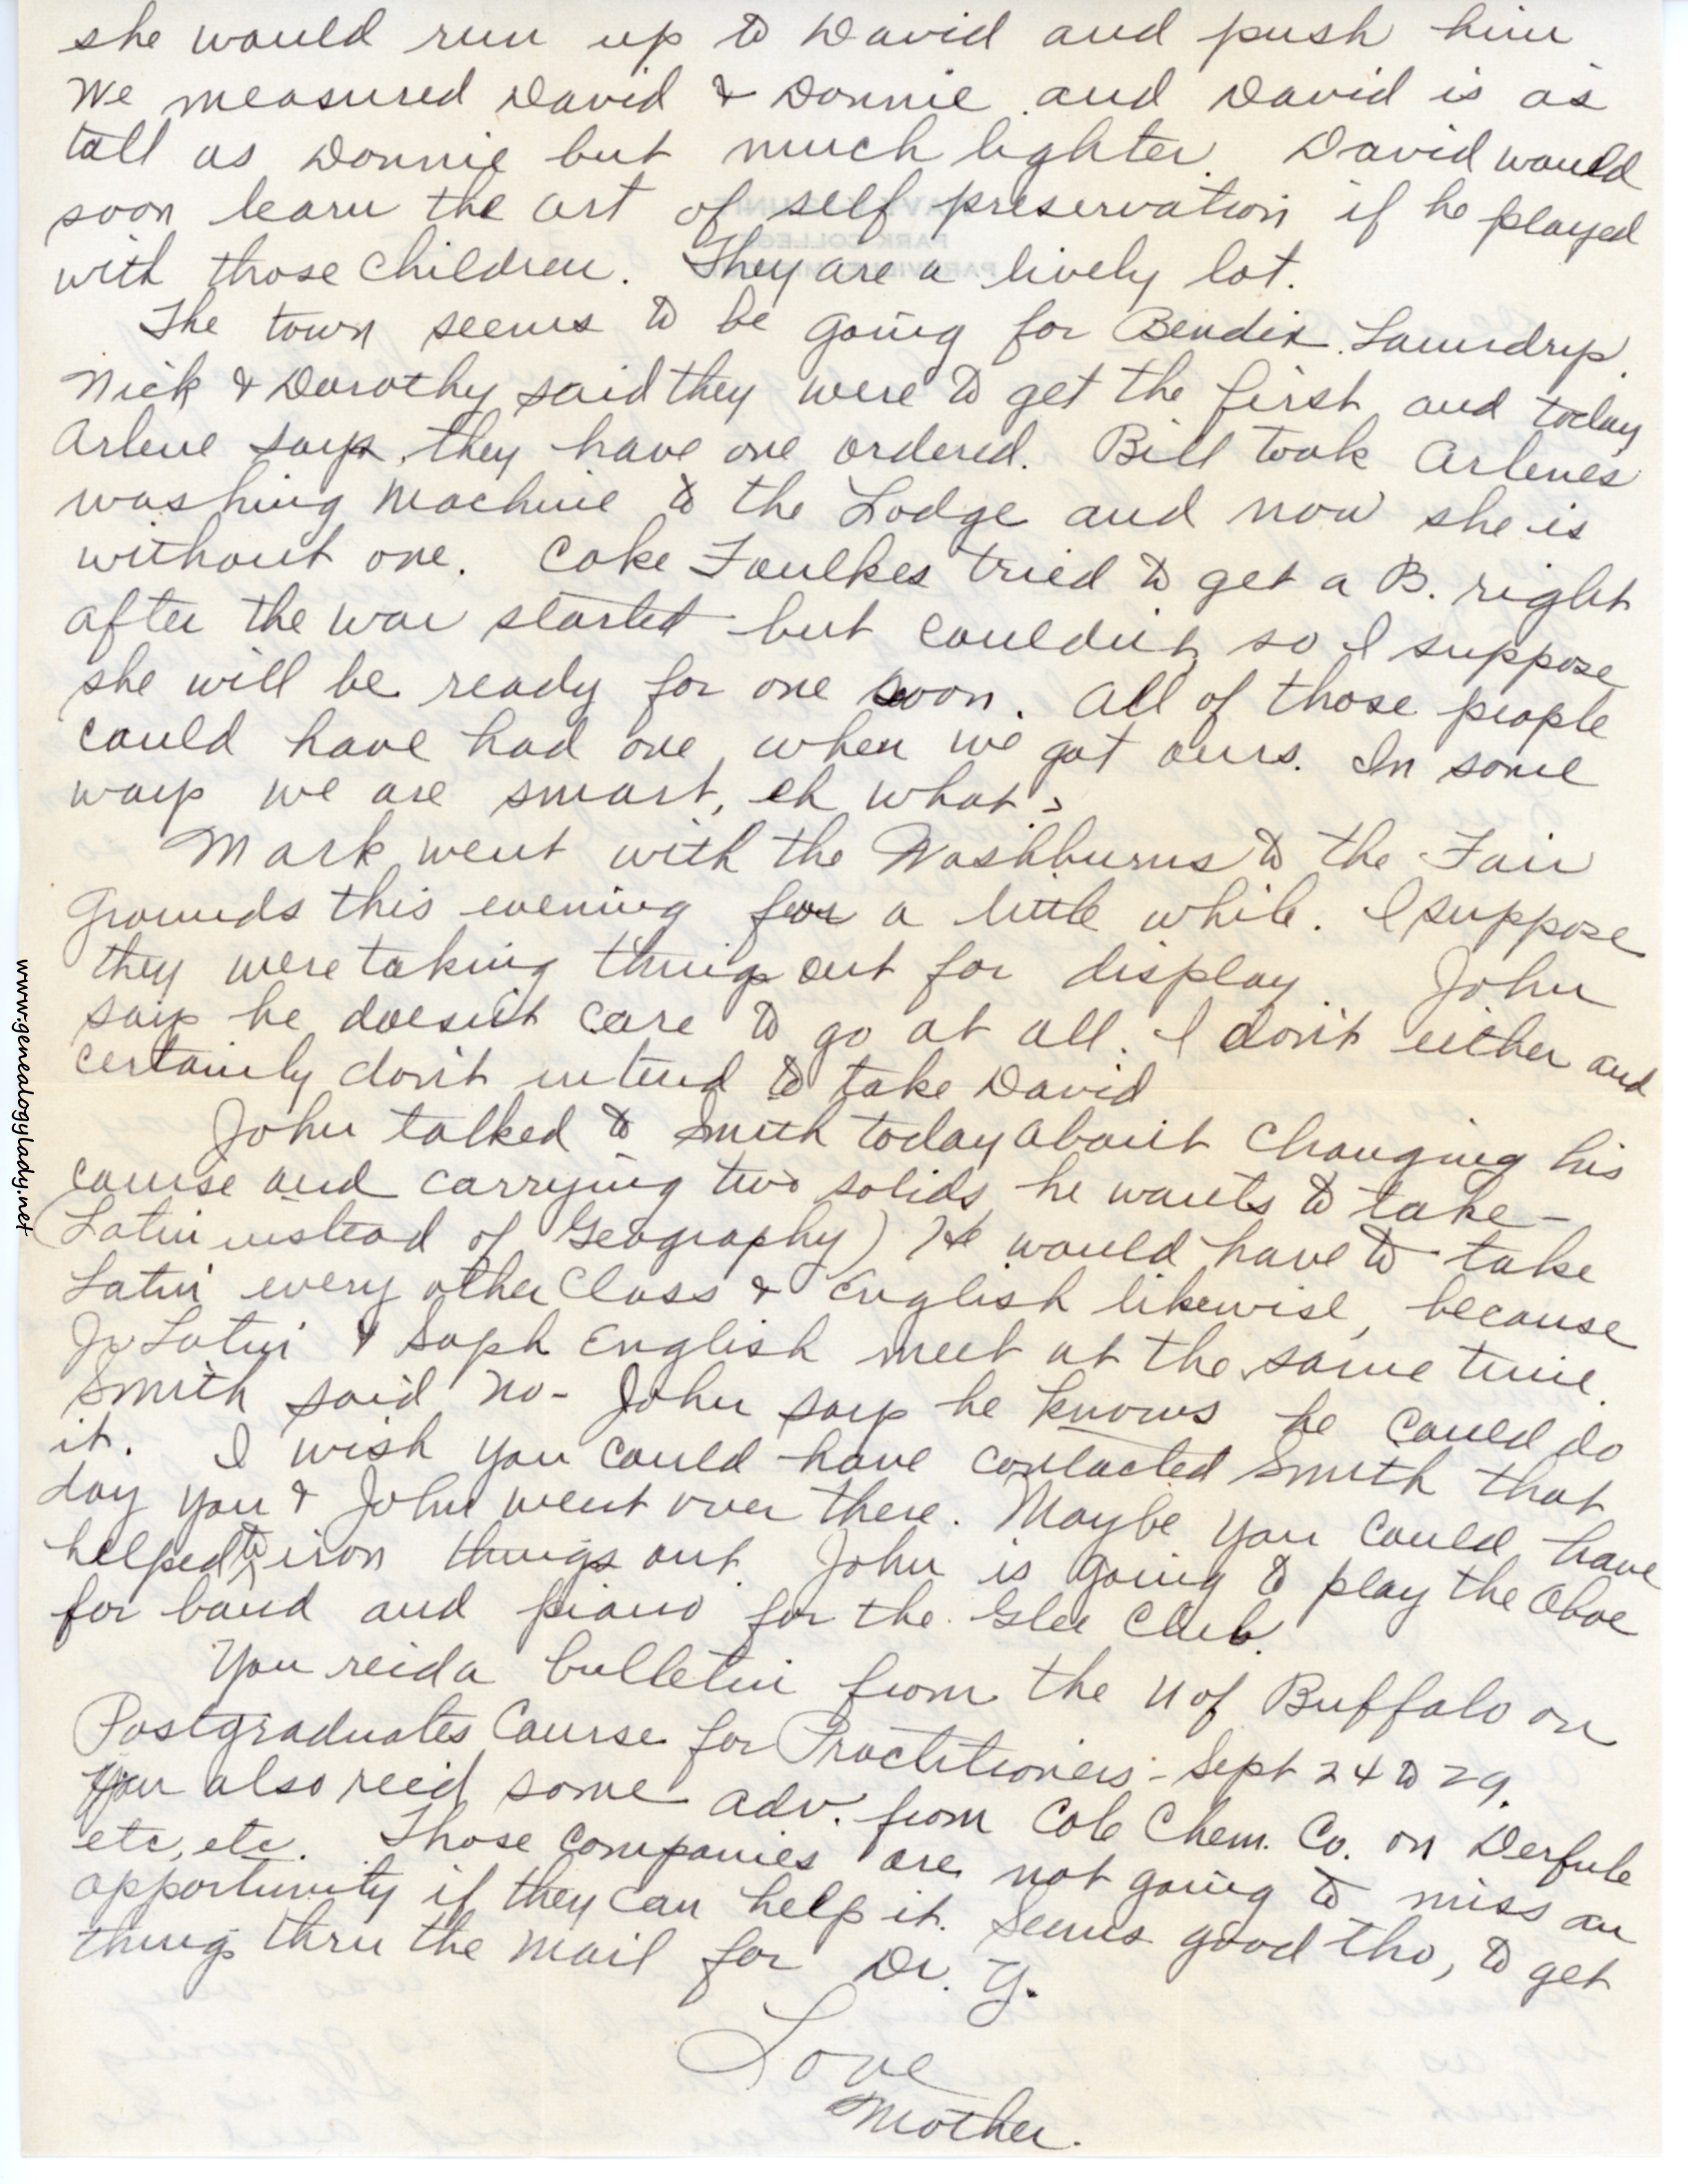 she would run up to David and push him
We measured David & Donnie and David is as
tall as Donnie but much lighter. David would
soon learn the art of self preservation if he played
with those children. They are a lively lot.
The town seems to be going for Bendix Laundrys.
Nick & Dorothy said they were to get the first and today
Arlene says they have one ordered. Bill took Arlenes
washing machine to the Lodge and now she is
without one. Coke Faulkes tried to get a B. right
after the war started but couldn't so I suppose
she will be ready for one soon. All of those people
could have had one when we got ours. In some
ways we are smart, eh what?
Mark went with the Washburns to the Fair
Grounds this evening for a little while. I suppose
they were taking things out for display John
says he doesn't care to go at all. I don't either and
certainly don't intend to take David
John talked to Smith today about changing his
course and carrying two solids he wants to take -
(Latin instead of Geography) He would have to take
Latin every other class & English likewise, because
Jr Latin & Soph English meet at the same time.
Smith said no - John says he knows he could do
it. I wish you could have contacted Smith that
day you & John went over there. Maybe you could have
helped to iron things out. John is going to play the Oboe
for band and piano for the Glee Club.
You reid a bulletin from the U of Buffalo on
Postgraduates Course for Practitioners - Sept 24 to 29.
You also reid some adv. from Cole Chem. Co. on Derfule
etc, etc. Those companies are not going to miss an
opportunity if they can help it. Seems good tho, to get
things thru the mail for Dr. Y.
Love
Mother.
www.genealogylady.net